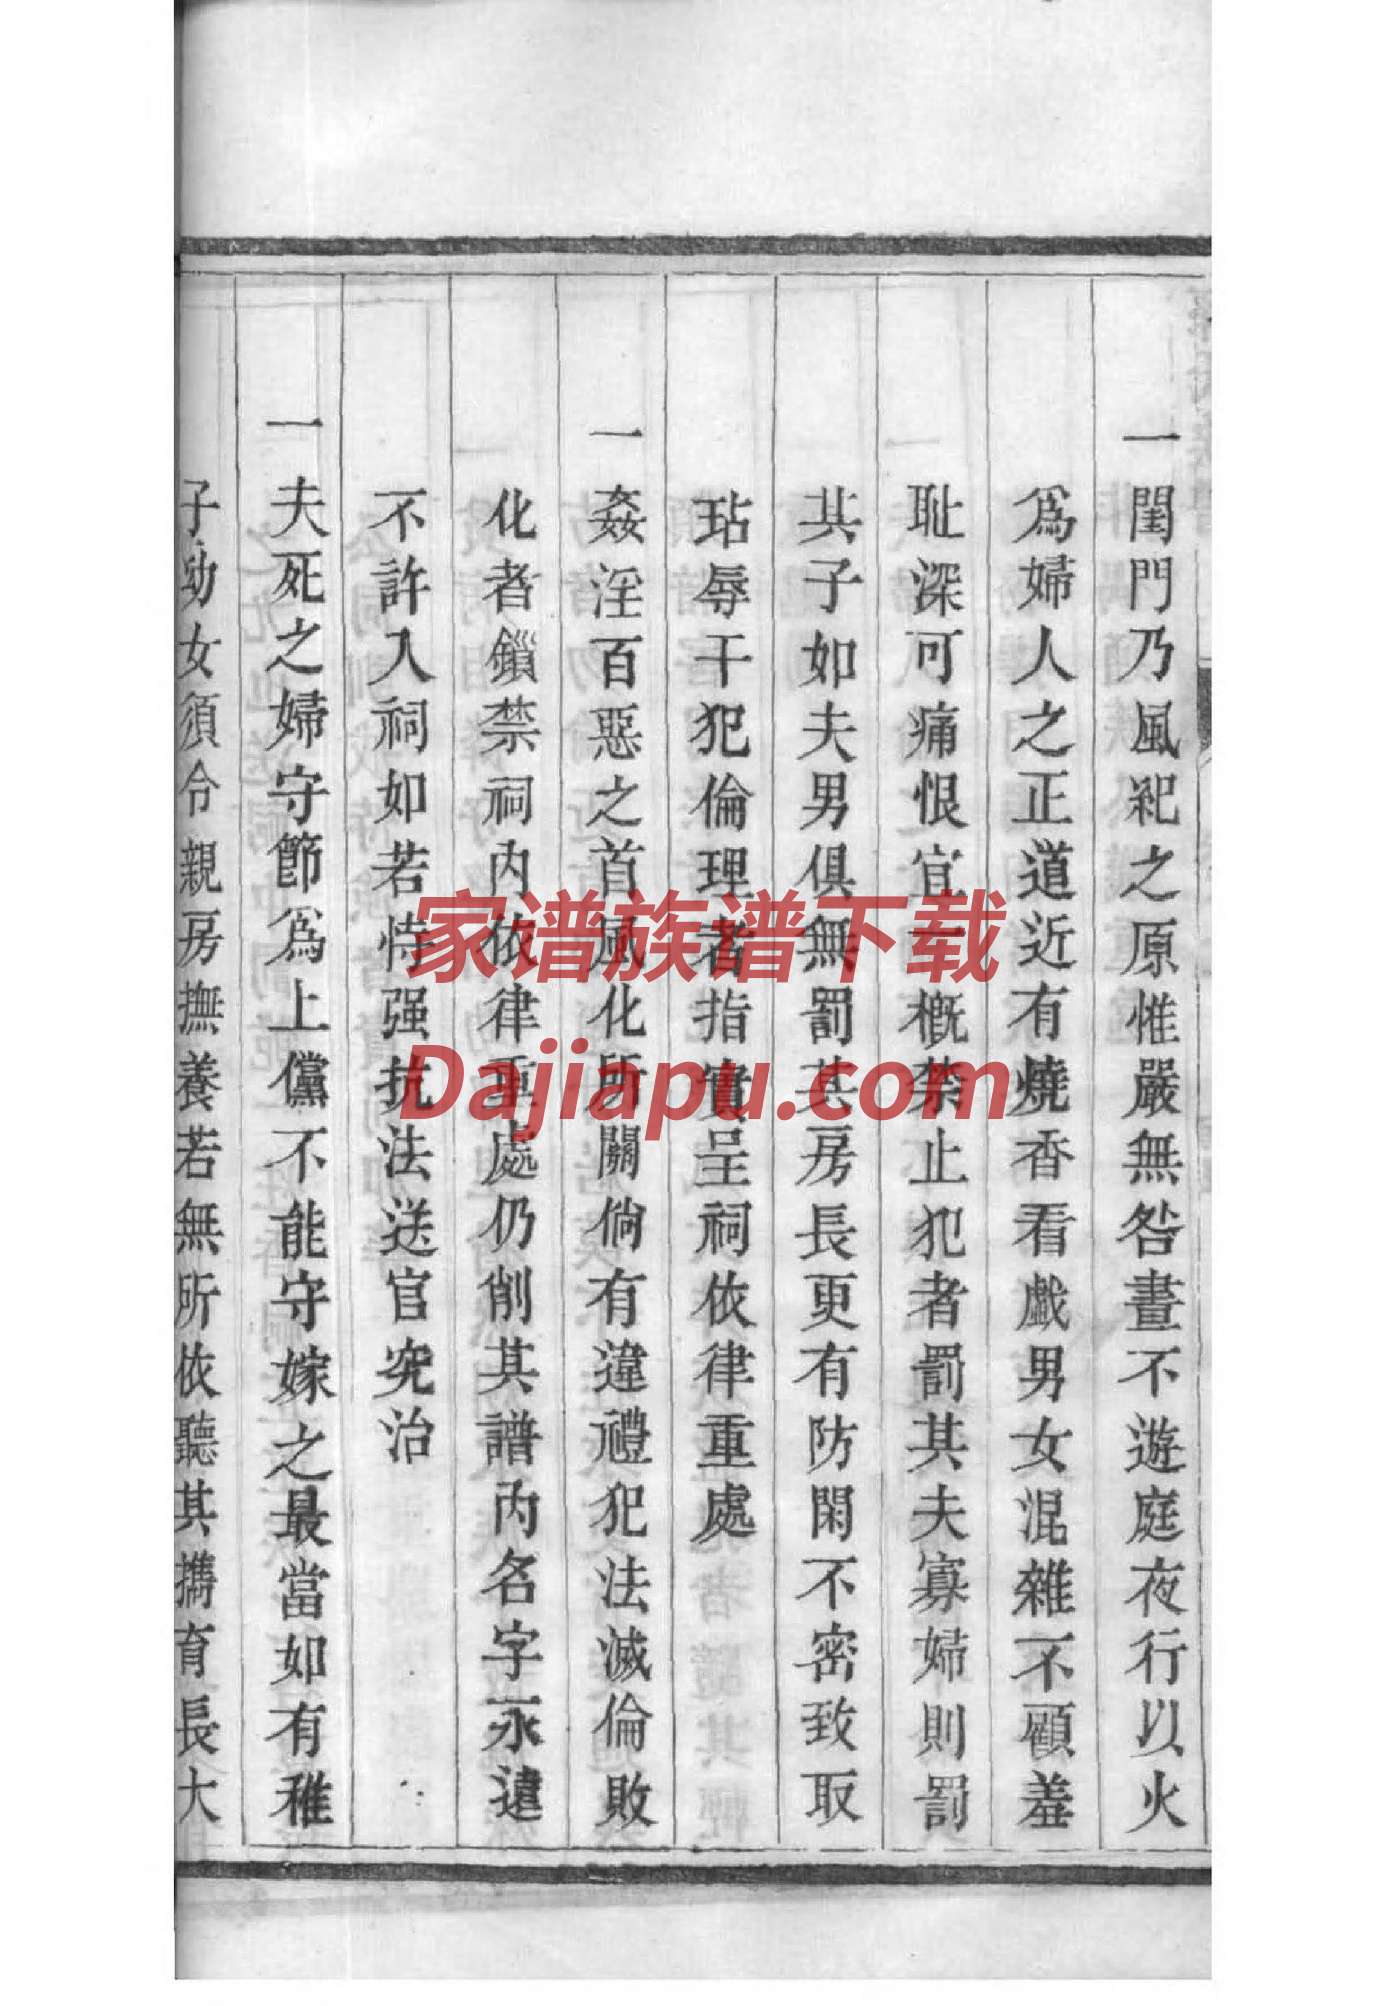 一閨門乃風祀之原惟嚴無咎晝不遊庭夜行以火
爲婦人之正道近有燒香看戲男女混雜不顧羞
耻深可痛恨宜一槪禁止犯者罰其夫寡婦則罰
其子如夫男俱無罰其房長更有防閑不密致取
玷辱干犯倫理者指實呈祠依律重處
一姦淫百惡之首風化所關倘有違禮犯法滅倫敗
化者鎖禁祠內依律重處仍削其譜內名字永遠
不許入祠如若恃强抗法送官究治
一夫死之婦守節爲上儻不能守嫁之最當如有稚
子幼女須令親房撫養若無所依聽其攜育長大
家谱族谱下载
Dajiapu.com